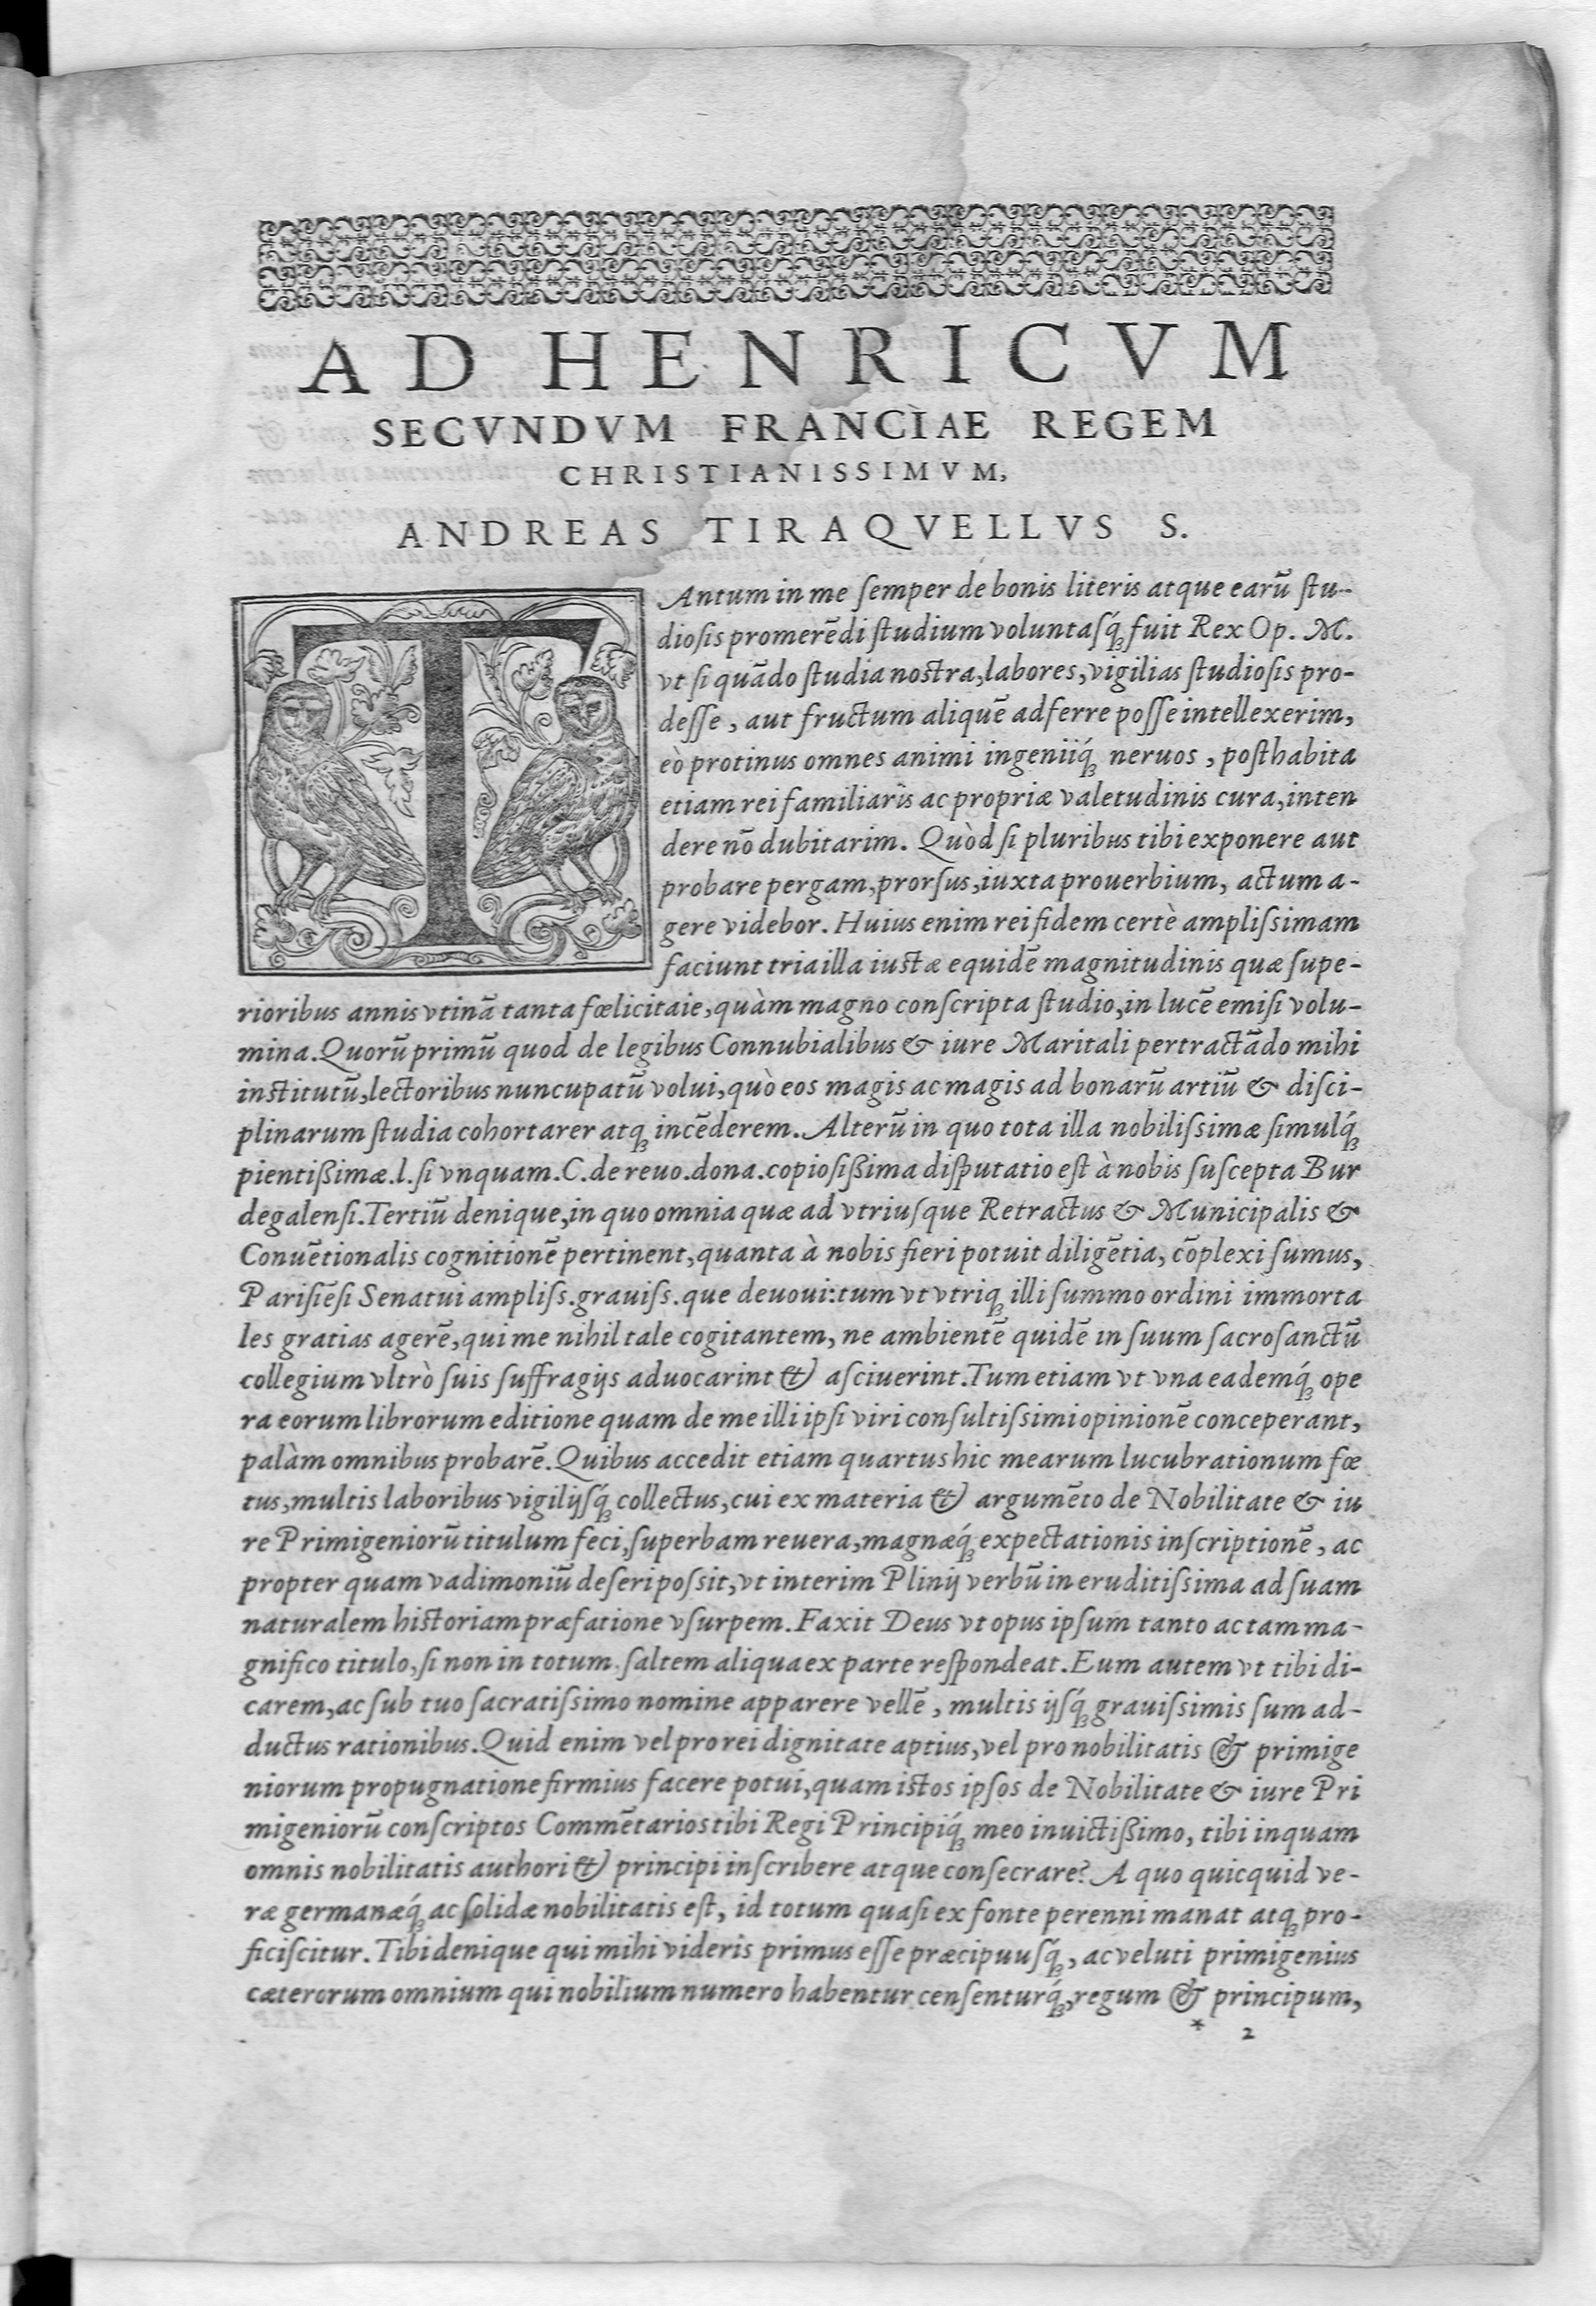 AD HENRICVM
SECVNDVM FRANCIAE REGEM
CHRISTIANISSIMVM,
ANDREAS TIRAQVELLVS S.
TAntum in me ſemper de bonis literis atque earũ ſtu-
dioſis promerẽdi ſtudium voluntaſq́ꝫ fuit Rex Op. M.
vt ſi quãdo ſtudia nostra, labores, vigilias ſtudioſis pro-
deſſe, aut fructum aliquẽ adferre poſſe intellexerim,
eò protinus omnes animi ingeniiq́ꝫ neruos, poſthabita
etiam rei familiaris ac propriæ valetudinis cura, inten
dere nõ dubitarim. Quòd ſi pluribus tibi exponere aut
probare pergam, prorſus, iuxta prouerbium, actum a-
gere videbor. Huius enim rei fidem certè ampliſsimam
faciunt tria illa iustæ equidẽ magnitudinis quæ ſupe-
rioribus annis vtinã tanta fœlicitaie, quàm magno conſcripta ſtudio, in lucẽ emiſi volu-
mina. Quorũ primũ quod de legibus Connubialibus & iure Maritali pertractãdo mihi
institutũ, lectoribus nuncupatũ volui, quò eos magis ac magis ad bonarũ artiũ & diſci-
plinarum ſtudia cohortarer atqꝫ incẽderem. Alterũ in quo tota illa nobiliſsimæ ſimulq́ꝫ
pientißimæ. l. ſi vnquam. C. de reuo. dona. copioſißima diſputatio eſt à nobis ſuſcepta Bur
degalenſi. Tertiũ denique, in quo omnia quæ ad vtriuſque Retractus & Municipalis &
Conuẽtionalis cognitionẽ pertinent, quanta à nobis fieri potuit diligẽtia, cõplexi ſumus,
Pariſiẽſi Senatui ampliſs. grauiſs. que deuoui: tum vt vtriqꝫ illi ſummo ordini immorta
les gratias agerẽ, qui me nihil tale cogitantem, ne ambientẽ quidẽ in ſuum ſacroſanctũ
collegium vltrò ſuis ſuffragijs aduocarint & aſciuerint. Tum etiam vt vna eademq́ꝫ ope
ra eorum librorum editione quam de me illi ipſi viri conſultiſsimi opinionẽ conceperant,
palàm omnibus probarẽ. Quibus accedit etiam quartus hic mearum lucubrationum fœ
tus, multis laboribus vigilijſq́ꝫ collectus, cui ex materia & argumẽto de Nobilitate & iu
re Primigeniorũ titulum feci, ſuperbam reuera, magnæq́ꝫ expectationis inſcriptionẽ, ac
propter quam vadimoniũ deſeri poſsit, vt interim Plinij verbũ in eruditiſsima ad ſuam
naturalem historiam præfatione vſurpem. Faxit Deus vt opus ipſum tanto ac tam ma-
gnifico titulo, ſi non in totum ſaltem aliqua ex parte reſpondeat. Eum autem vt tibi di-
carem, ac ſub tuo ſacratiſsimo nomine apparere vellẽ, multis ijſq́ꝫ grauiſsimis ſum ad-
ductus rationibus. Quid enim vel pro rei dignitate aptius, vel pro nobilitatis & primige
niorum propugnatione firmius facere potui, quam istos ipſos de Nobilitate & iure Pri
migeniorũ conſcriptos Commẽtarios tibi Regi Principiq́ꝫ meo inuictißimo, tibi inquam
omnis nobilitatis authori & principi inſcribere atque conſecrare? A quo quicquid ve-
ræ germanæq́ꝫ ac ſolidæ nobilitatis eſt, id totum quaſi ex fonte perenni manat atqꝫ pro-
ficiſcitur. Tibi denique qui mihi videris primus eſſe præcipuuſq́ꝫ, ac veluti primigenius
cæterorum omnium qui nobilium numero habentur cenſenturq́ꝫ, regum & principum,
* 2